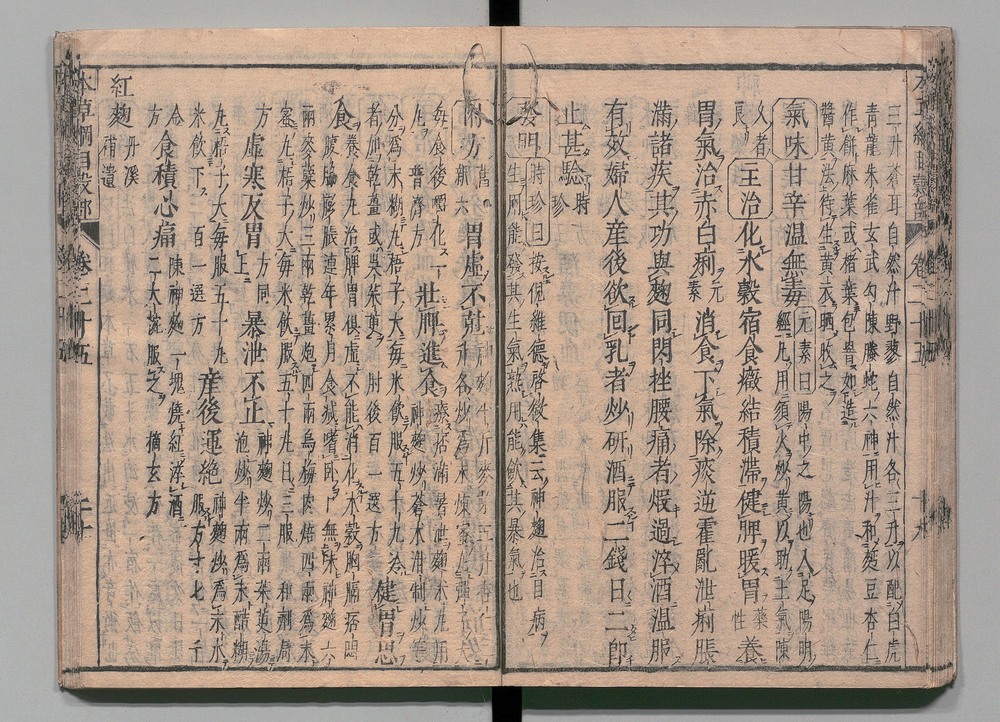 三升蒼耳自然汁野蓼自然汁各三升以配白虎
青龍朱雀玄武勾陳螣蛇六神用汁和麫豆杏仁
作餠麻葉或楮葉包罯如造
醬黃法待生黃衣晒收之
氣味甘辛溫無毒 元素曰陽中之陽也入足陽明
經凡用須火炒黃以助土氣陳
久者良 主治 化水穀宿食癥結積滯健脾暖胃 藥性 養
胃氣治赤白痢 元素 消食下氣除痰逆霍亂泄痢脹
滿諸疾其功與麴同閃挫腰痛者煅過淬酒溫服
有效婦人產後欲回乳者炒研酒服二錢日二即
止甚驗 時珍
發明 時珍曰 按倪維德啓微集云神麴治目病
生用能發其生氣熟用能斂其暴氣也
附方 新六 胃虛不尅 各炒爲末煉蜜丸彈
每食後嚼化一
丸 普濟方 壯脾進食 療痞滿暑泄麴朮丸用
神麴炒蒼朮泔制炒等
分爲末糊丸梧子大每米飮服五十丸冷
者加乾薑或吳茱萸 肘後百一選方 健胃思
食 養食丸治脾胃俱虛不能消化水穀胸膈痞悶
腹脇膨脹連年累月食減嗜卧口無味神麴六
兩麥蘖炒三兩乾薑炮四兩烏梅肉焙四兩爲末
蜜丸梧子大每米飮服五十丸日三服 和劑局
方 虛寒反胃 方同上 暴泄不止 神麴炒二兩茱萸湯
泡炒半兩爲末醋糊
丸梧子大每服五十丸
米飮下 百一選方 產後運絕 神麴炒爲末水
服方寸七 千
金方 食積心痛 陳神麴一塊燒紅淬酒
二大碗服之 摘玄方
紅麴 丹溪補遺
本草綱目穀部 卷二十五